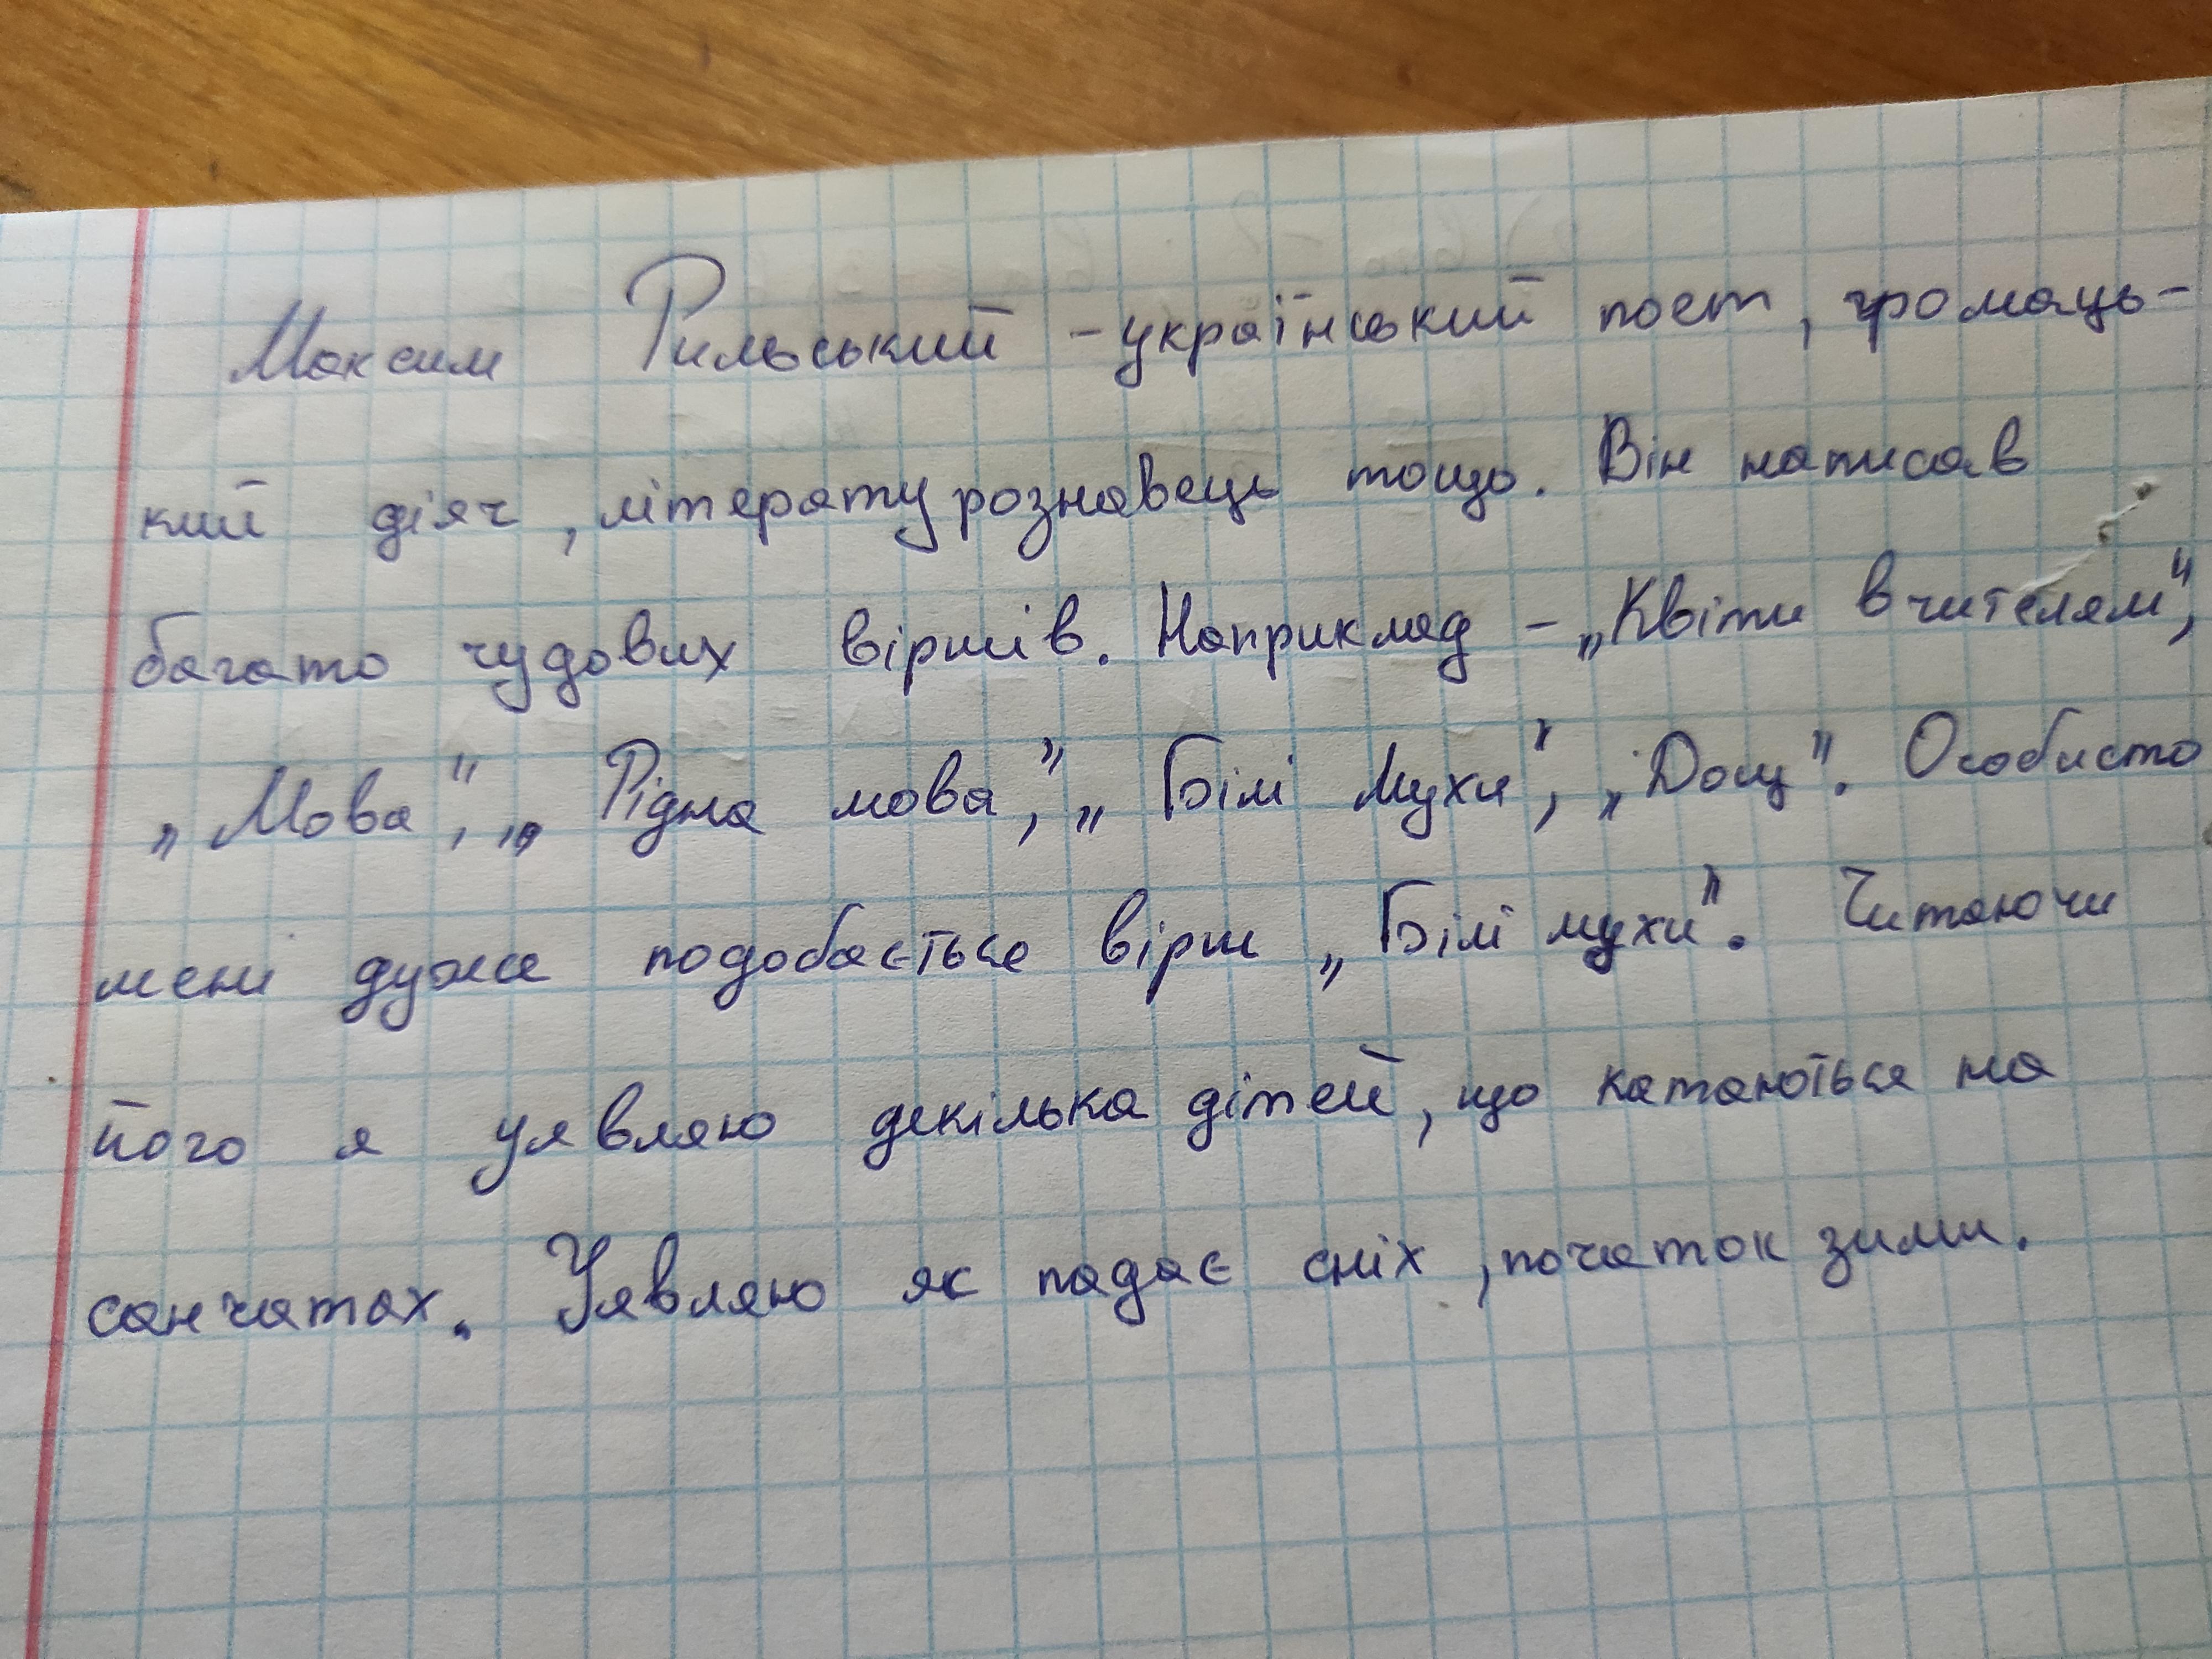 Максим Рильський - український поет, громаць-
кий діяч, літературознавець тощо. Він написав
багато чудових віршів. Наприклад - „Квіти вчителям",
„Мова", „Рідна мова", „Білі мухи", „Дощ". Особисто
мені дуже подобається вірш „Білі мухи". Читаючи
його я уявляю декілька дітей, що катаються на
санчатах. Уявляю як падає сніх, початок зими.